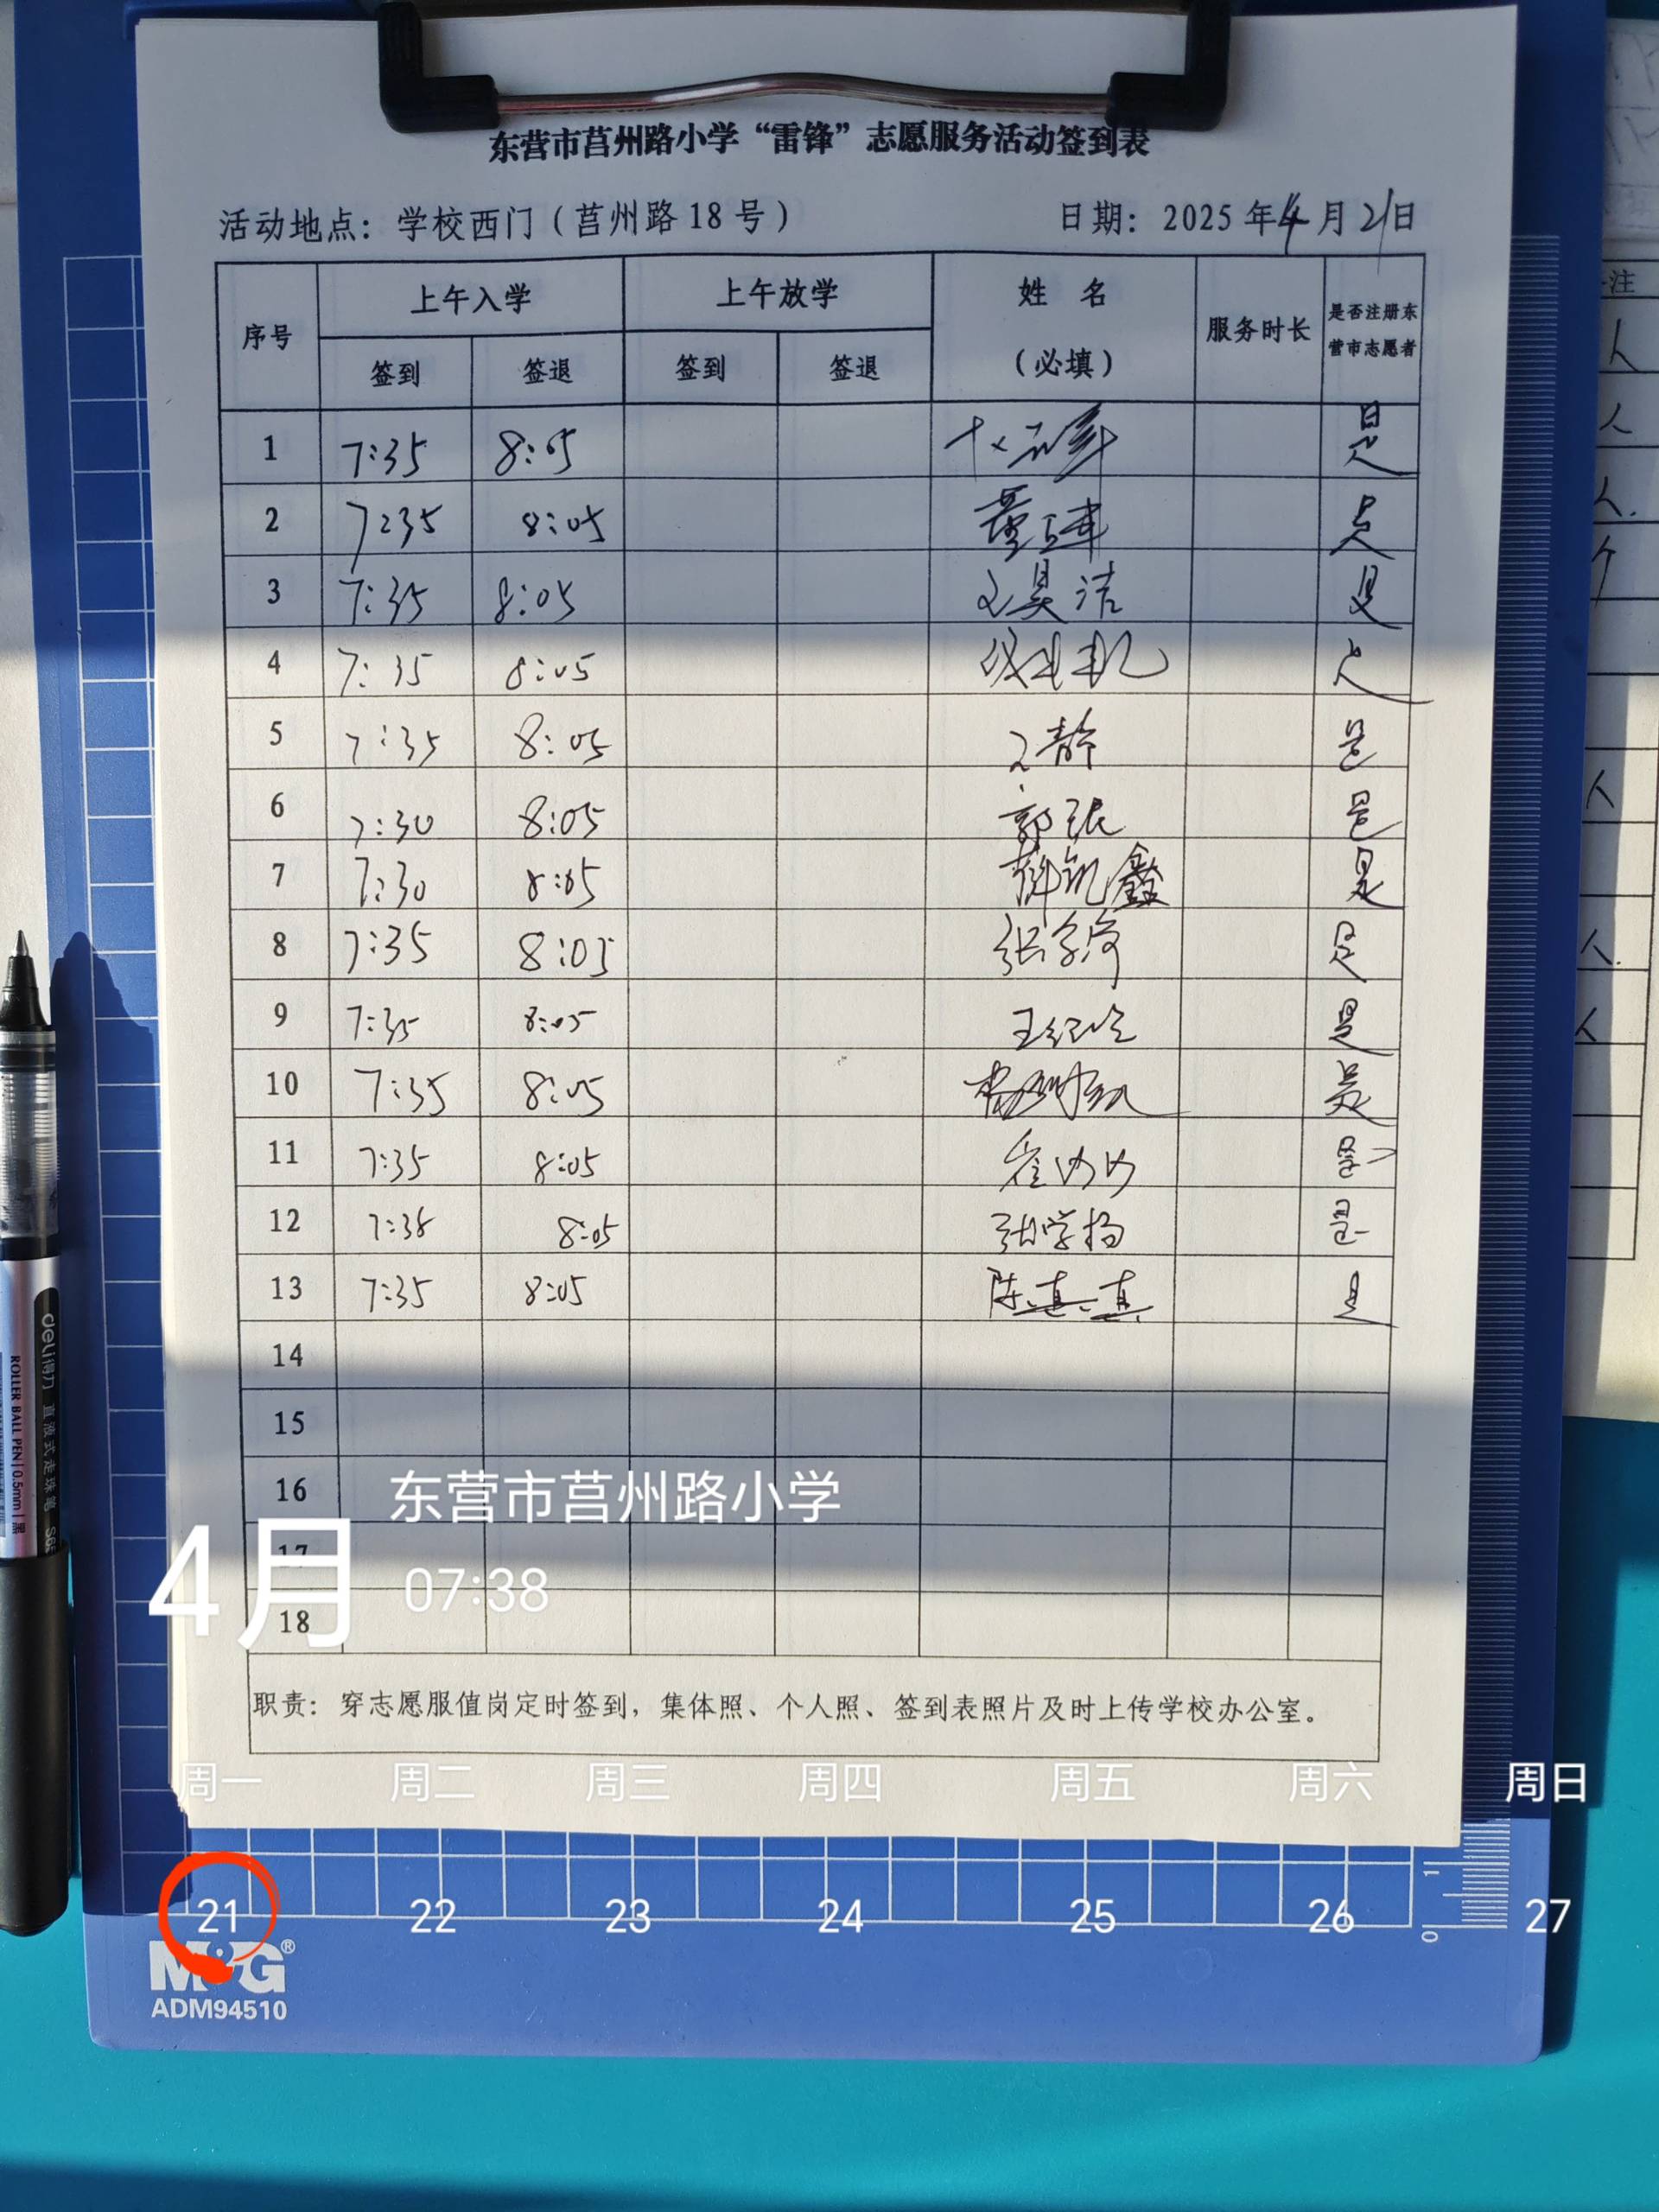 东营市莒州路小学“雷锋”志愿服务活动签到表
活动地点：学校西门（莒州路18号） 日期：2025年4月21日
序号 上午入学 上午放学 姓 名 服务时长 是否注册东
签到 签退 签到 签退 （必填） 营市志愿者
1 7:35 8:05 是
2 7:35 8:05 是
3 7:35 8:05 是
4 7:35 8:05 是
5 7:35 8:05 是
6 7:30 8:05 是
7 7:30 8:05 薛凯鑫 是
8 7:35 8:05 是
9 7:35 8:05 是
10 7:35 8:05 是
11 7:35 8:05 是
12 7:38 8:05 张学杨 是
13 7:35 8:05 陈真真 是
14
15
16
17
18
职责：穿志愿服值岗定时签到，集体照、个人照、签到表照片及时上传学校办公室。
东营市莒州路小学
4月 07:38
周一 周二 周三 周四 周五 周六 周日
21 22 23 24 25 26 27
M&G®
ADM94510
0 1
deli得力 直液式走珠笔
ROLLER BALL PEN|0.5mm|黑
注
人
人
人.
个
人
人.
人